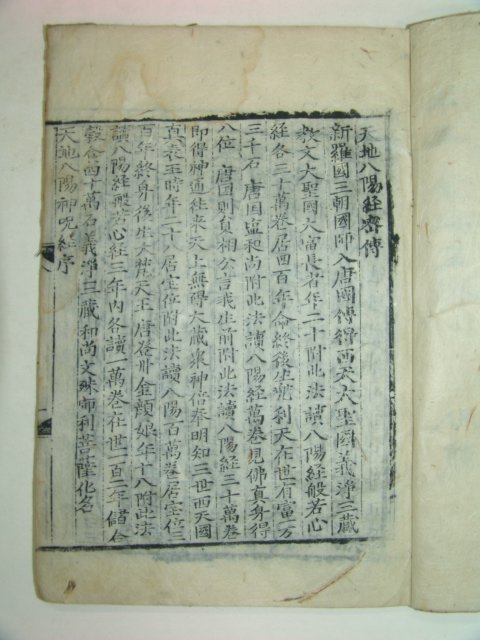 天地八陽經密傳
新羅國三朝國師入唐國傳得西天大聖國義淨三藏
教文大聖國大富長者年二十附此法讀八陽經般若心
經各三十萬卷居四百年命終後生兜利天在世有富一万
三千石唐国盧和尚附此法讀八陽經萬卷見佛真身得
八位唐国則貧相公言我生前附此法讀八陽經三十萬卷
即得神通往来天上無碍大藏衆神倍奉明知三世西天國
直表王時年二十八居宝位附此法讀八陽百萬卷居宝位三
百年終身後生大梵天王唐卷州金顔娘年十八附此法
讀八陽經般若心經三年內各讀一萬卷在世一百二年儲金
穀合四十萬石義淨三藏和尚文殊師利菩薩化名
天地八陽神呪經序